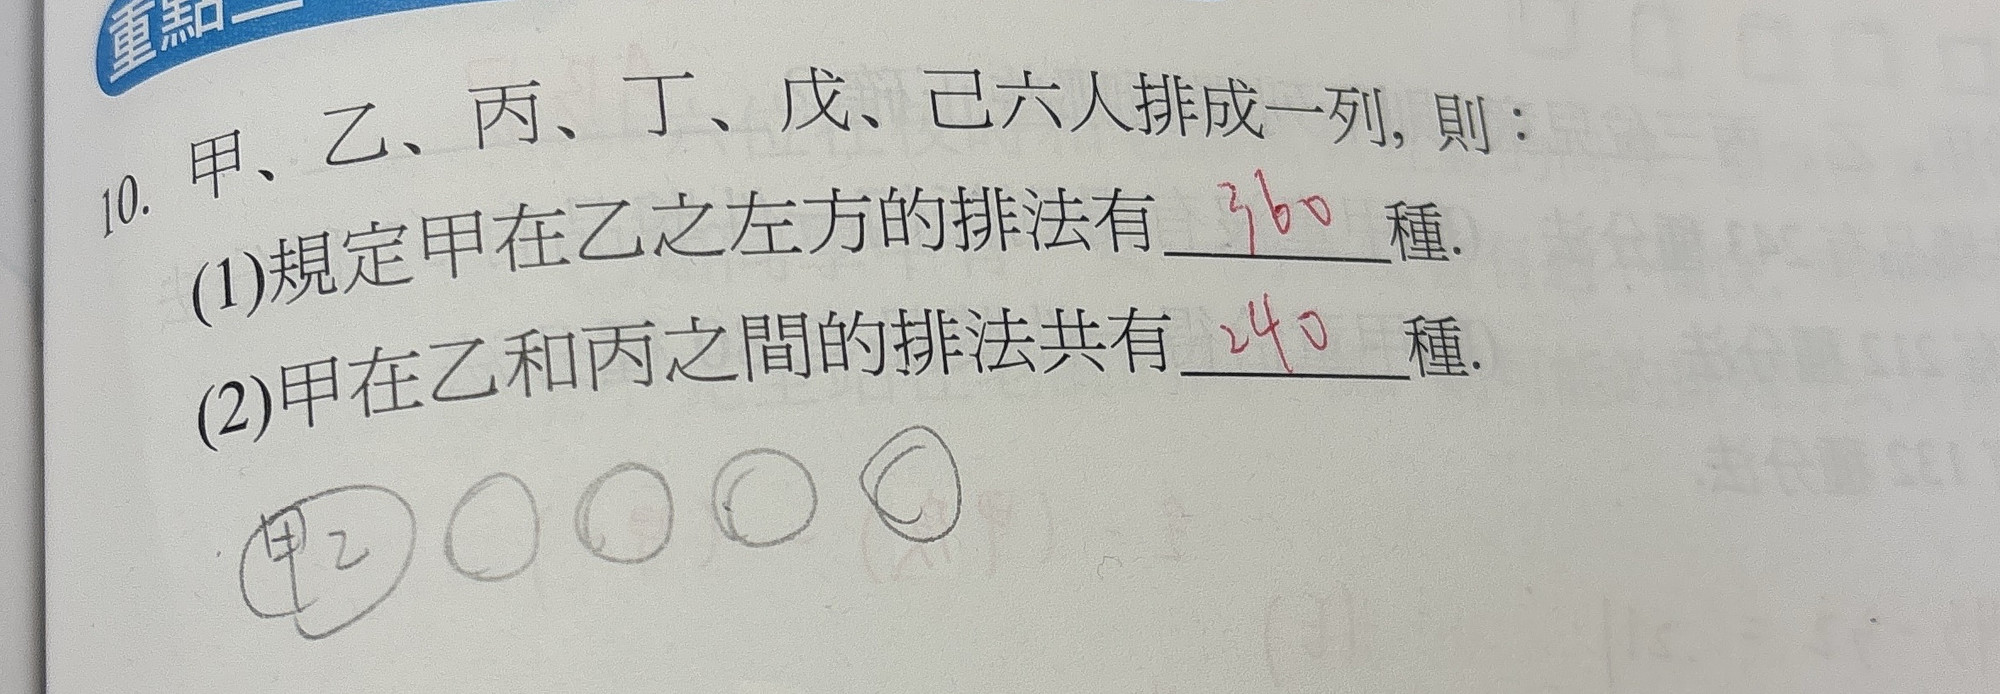 重點二
10. 甲、乙、丙、丁、戊、己六人排成一列, 則：
(1)規定甲在乙之左方的排法有 360 種.
(2)甲在乙和丙之間的排法共有 240 種.
甲乙